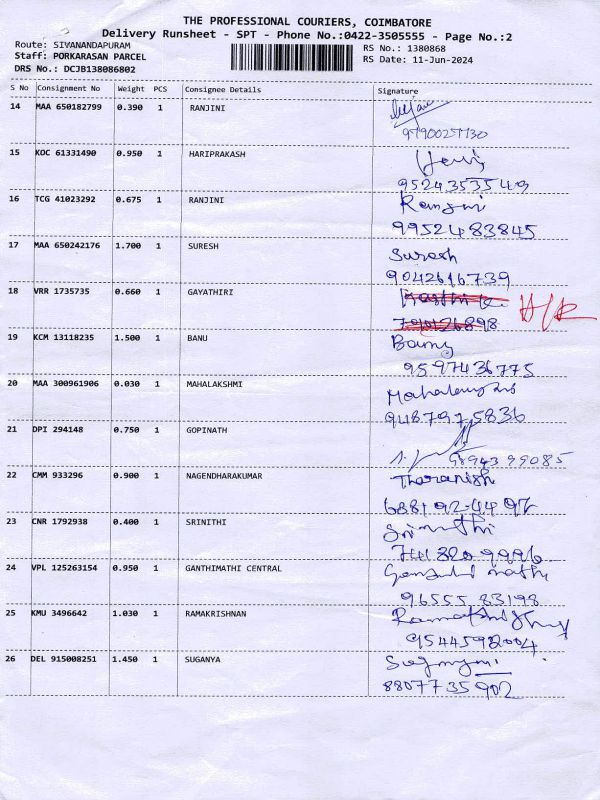 THE PROFESSIONAL COURIERS, COIMBATORE
Delivery Runsheet - SPT - Phone No.:0422-3505555 - Page No.:2
Route: SIVANANDAPURAM
RS No.: 1380868
Staff: PORKARASAN PARCEL
RS Date: 11-Jun-2024
DRS No.: DCJB138086802
S No Consignment No Weight PCS Consignee Details Signature
14 MAA 650182799 0.390 1 RANJINI
97900257730
15 KOC 61331490 0.950 1 HARIPRAKASH
9524353549
16 TCG 41023292 0.675 1 RANJINI Ranjini
9952483845
17 MAA 650242176 1.700 1 SURESH Suresh
9042616739
18 VRR 1735735 0.660 1 GAYATHIRI
19 KCM 13118235 1.500 1 BANU
9597436775
20 MAA 300961906 0.030 1 MAHALAKSHMI
9487975836
21 DPI 294148 0.750 1 GOPINATH
9894399085
22 CMM 933296 0.900 1 NAGENDHARAKUMAR Tharanish
23 CNR 1792938 0.400 1 SRINITHI Srinithi
24 VPL 125263154 0.950 1 GANTHIMATHI CENTRAL
9655583198
25 KMU 3496642 1.030 1 RAMAKRISHNAN
9544592004
26 DEL 915008251 1.450 1 SUGANYA
8807735902